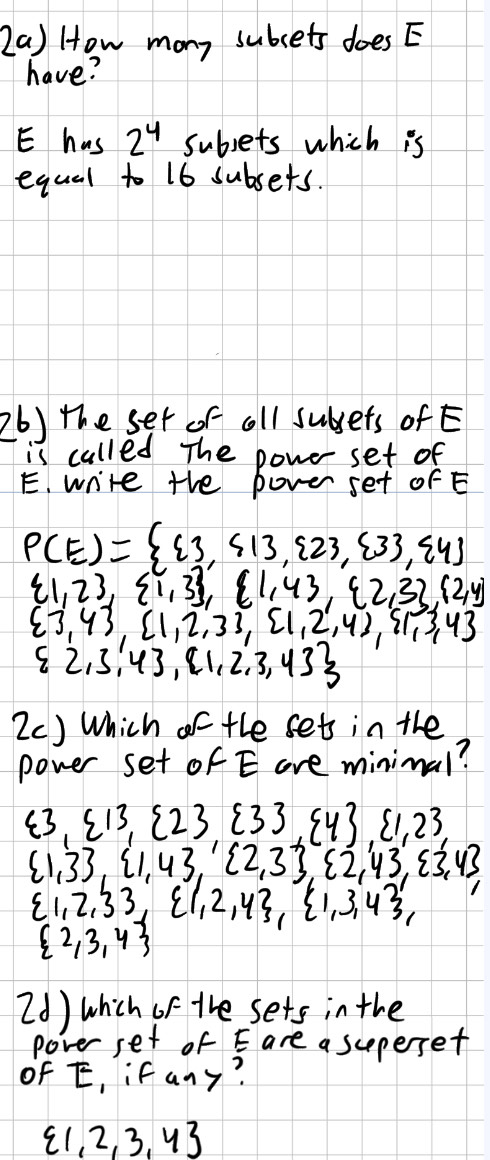 2a) How many subsets does E
have?
E has 2⁴ subsets which is
equal to 16 subsets.
2b) The set of all subsets of E
is called The power set of
E. write the power set of E
P(E) = { {}, {1}, {2}, {3}, {4}
{1,2}, {1,3}, {1,4}, {2,3}, {2,4}
{3,4}, {1,2,3}, {1,2,4}, {1,3,4}
{2,3,4}, {1,2,3,4}}
2c) Which of the sets in the
power set of E are minimal?
{}, {1}, {2}, {3}, {4}, {1,2},
{1,3}, {1,4}, {2,3}, {2,4}, {3,4},
{1,2,3}, {1,2,4}, {1,3,4},
{2,3,4}
2d) Which of the sets in the
power set of E are a superset
of E, if any?
{1,2,3,4}